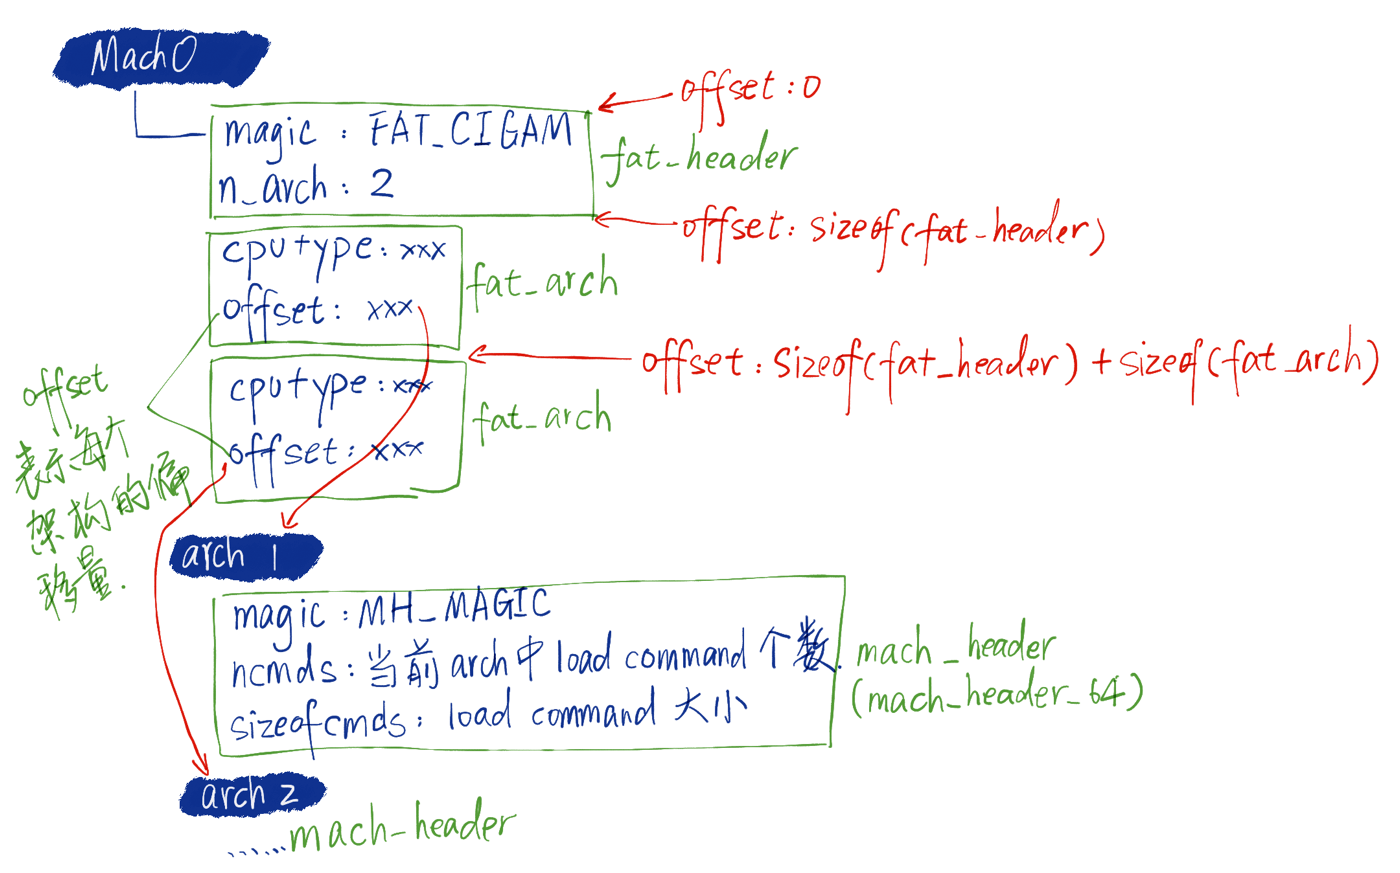 MachO
offset:0
magic : FAT_CIGAM
fat_header
n_arch: 2
offset: sizeof(fat_header)
cputype: xxx
fat_arch
offset: xxx
offset: sizeof(fat_header) + sizeof(fat_arch)
cputype: xxx
fat_arch
offset: xxx
offset
表示每个
架构的偏
移量.
arch 1
magic : MH_MAGIC
ncmds: 当前 arch中 load command 个数.
sizeofcmds: load command 大小
mach_header
(mach_header_64)
arch 2
......mach-header